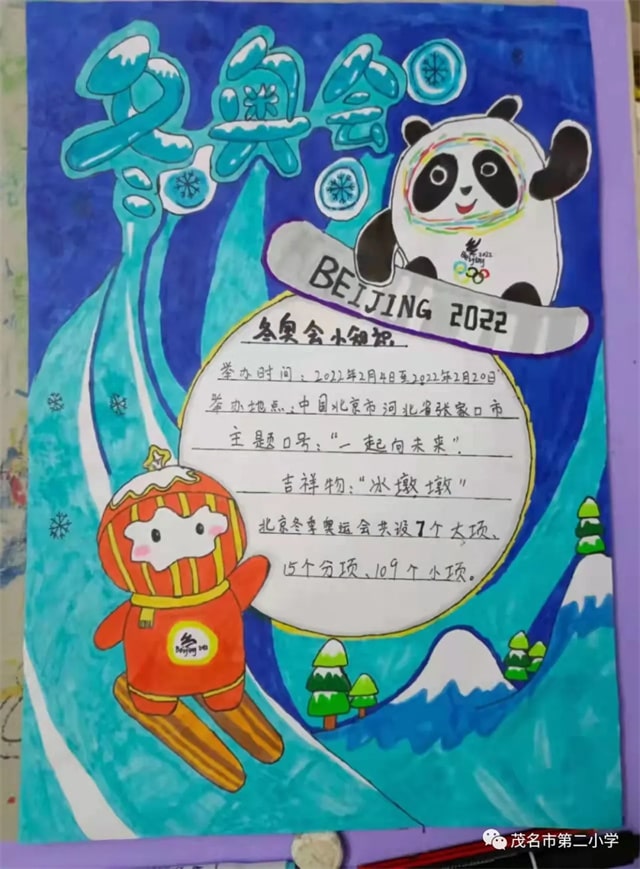 冬奥会
BEIJING 2022
冬奥会小知识
举办时间：2022年2月4日至2022年2月20日
举办地点：中国北京市河北省张家口市
主题口号：“一起向未来”.
吉祥物：“冰墩墩”
北京冬季奥运会共设7个大项、
15个分项、109个小项。
Beijing 2022
茂名市第二小学